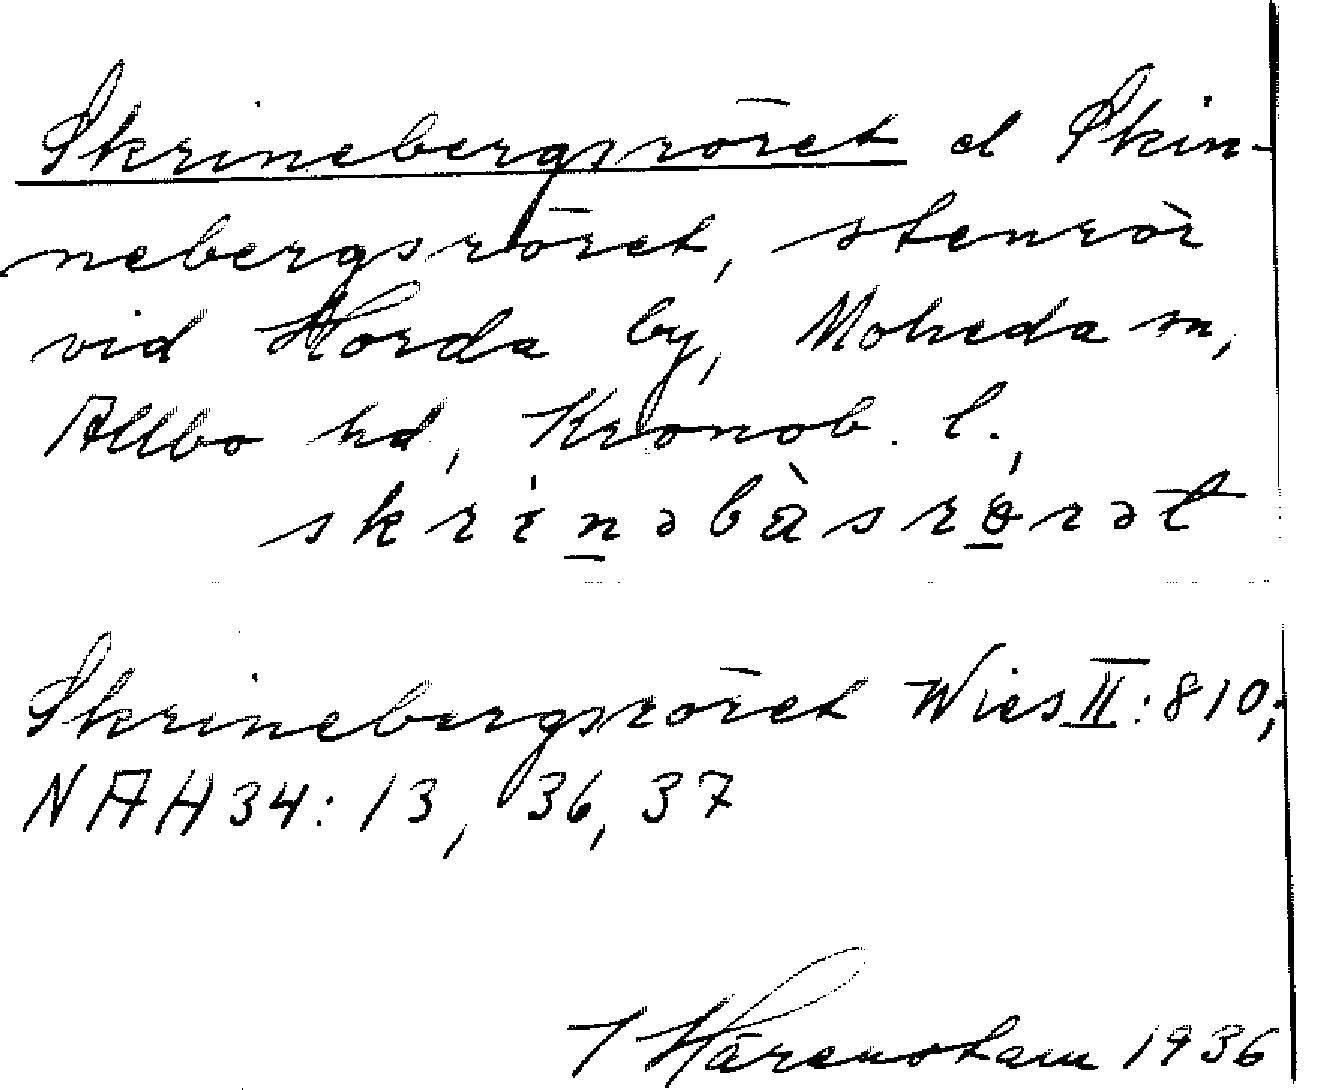 Skrinebergsröret el Skin-
nebergsröret, stenrör
vid Horda by, Moheda sn,
Allbo hd, Kronob. l.,
skrinəbàsrørət
Skrinebergsröret Wies II: 810;
NAH 34: 13, 36, 37
1936